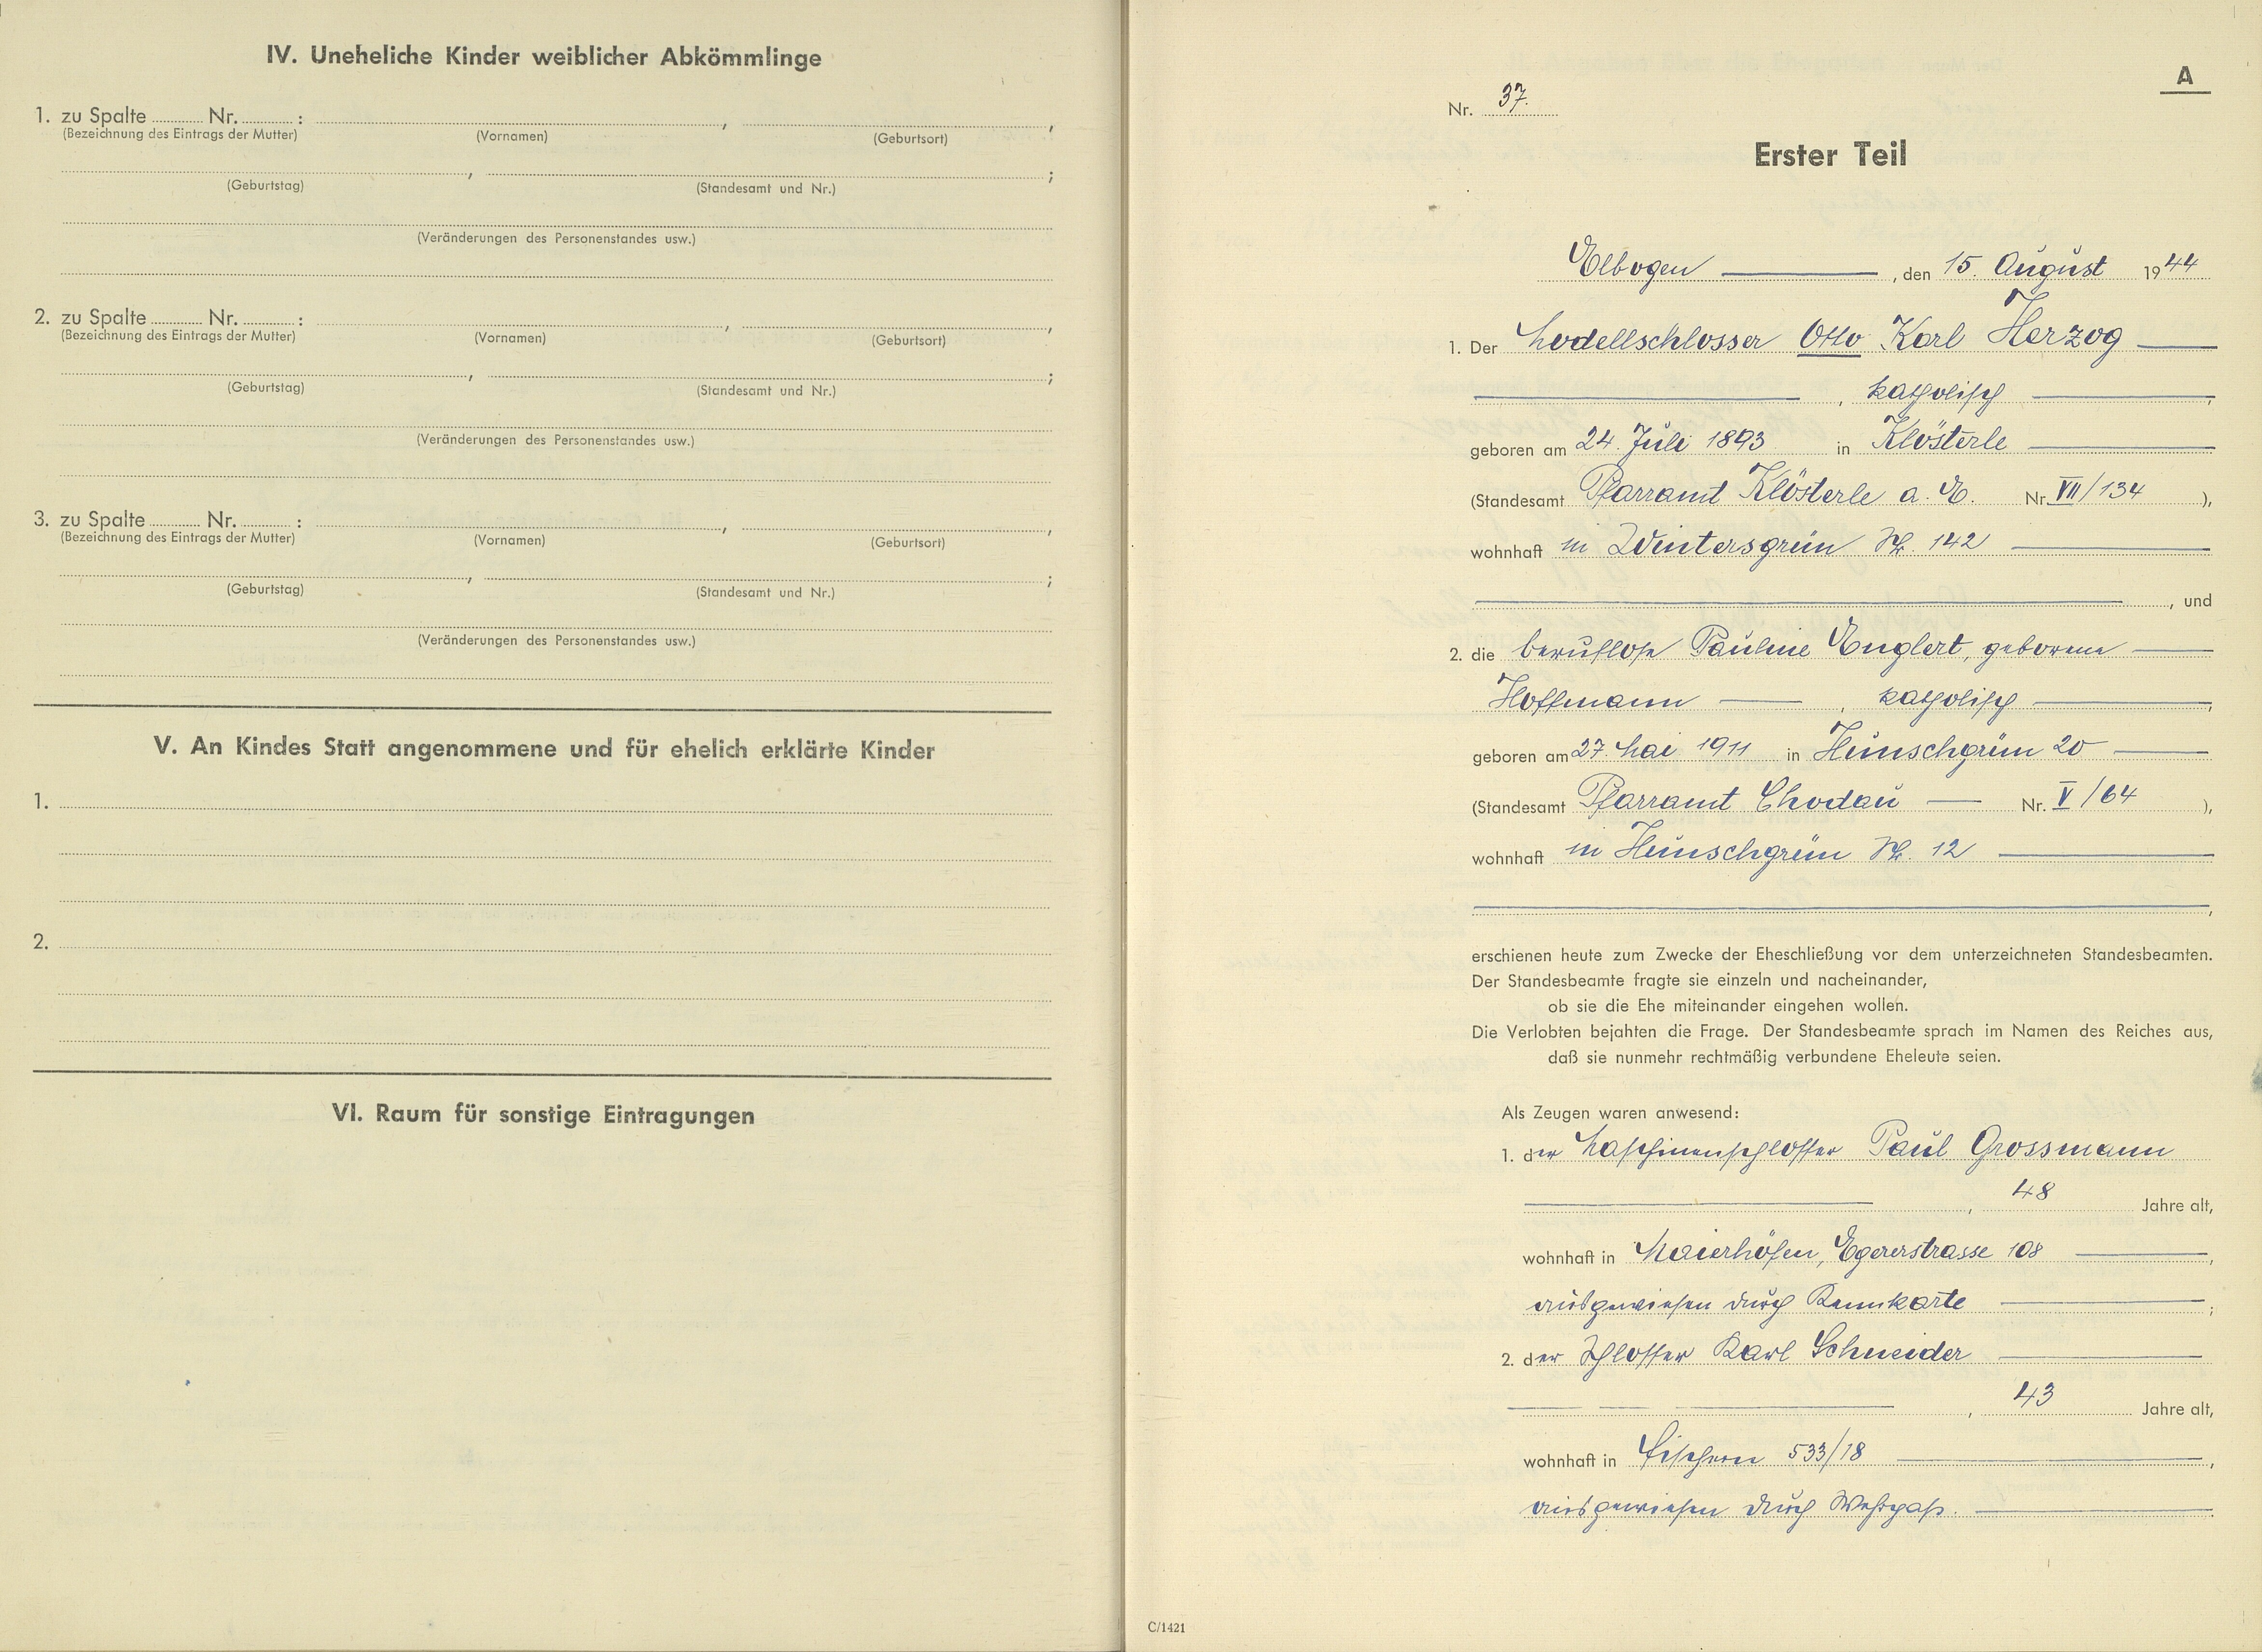 IV. Uneheliche Kinder weiblicher Abkömmlinge
1. zu Spalte ........ Nr. ........ :
(Bezeichnung des Eintrags der Mutter) (Vornamen) (Geburtsort)
(Geburtstag) (Standesamt und Nr.)
(Veränderungen des Personenstandes usw.)
2. zu Spalte ........ Nr. ........ :
(Bezeichnung des Eintrags der Mutter) (Vornamen) (Geburtsort)
(Geburtstag) (Standesamt und Nr.)
(Veränderungen des Personenstandes usw.)
3. zu Spalte ........ Nr. ........ :
(Bezeichnung des Eintrags der Mutter) (Vornamen) (Geburtsort)
(Geburtstag) (Standesamt und Nr.)
(Veränderungen des Personenstandes usw.)
V. An Kindes Statt angenommene und für ehelich erklärte Kinder
1.
2.
VI. Raum für sonstige Eintragungen
A
Nr. 37.
Erster Teil
Elbogen , den 15. August 1944
1. Der Modellschlosser Otto Karl Herzog
, katholisch ,
geboren am 24. Juli 1893 in Klösterle
(Standesamt Pfarramt Klösterle a. E. Nr. VII/134 ),
wohnhaft in Wintersgrün Nr. 142
, und
2. die berufslose Pauline Englert, geborene
Hoffmann , katholisch ,
geboren am 27. Mai 1911 in Hunschgrün 20
(Standesamt Pfarramt Chodau Nr. V/64 ),
wohnhaft in Hunschgrün Nr. 12
,
erschienen heute zum Zwecke der Eheschließung vor dem unterzeichneten Standesbeamten.
Der Standesbeamte fragte sie einzeln und nacheinander,
ob sie die Ehe miteinander eingehen wollen.
Die Verlobten bejahten die Frage. Der Standesbeamte sprach im Namen des Reiches aus,
daß sie nunmehr rechtmäßig verbundene Eheleute seien.
Als Zeugen waren anwesend:
1. der Maschinenschlosser Paul Grossmann
, 48 Jahre alt,
wohnhaft in Maierhöfen, Egererstrasse 108 ,
ausgewiesen durch Kennkarte ;
2. der Schlosser Karl Schneider
, 43 Jahre alt,
wohnhaft in Fischern 533/18 ,
ausgewiesen durch Wehrpass.
C/1421